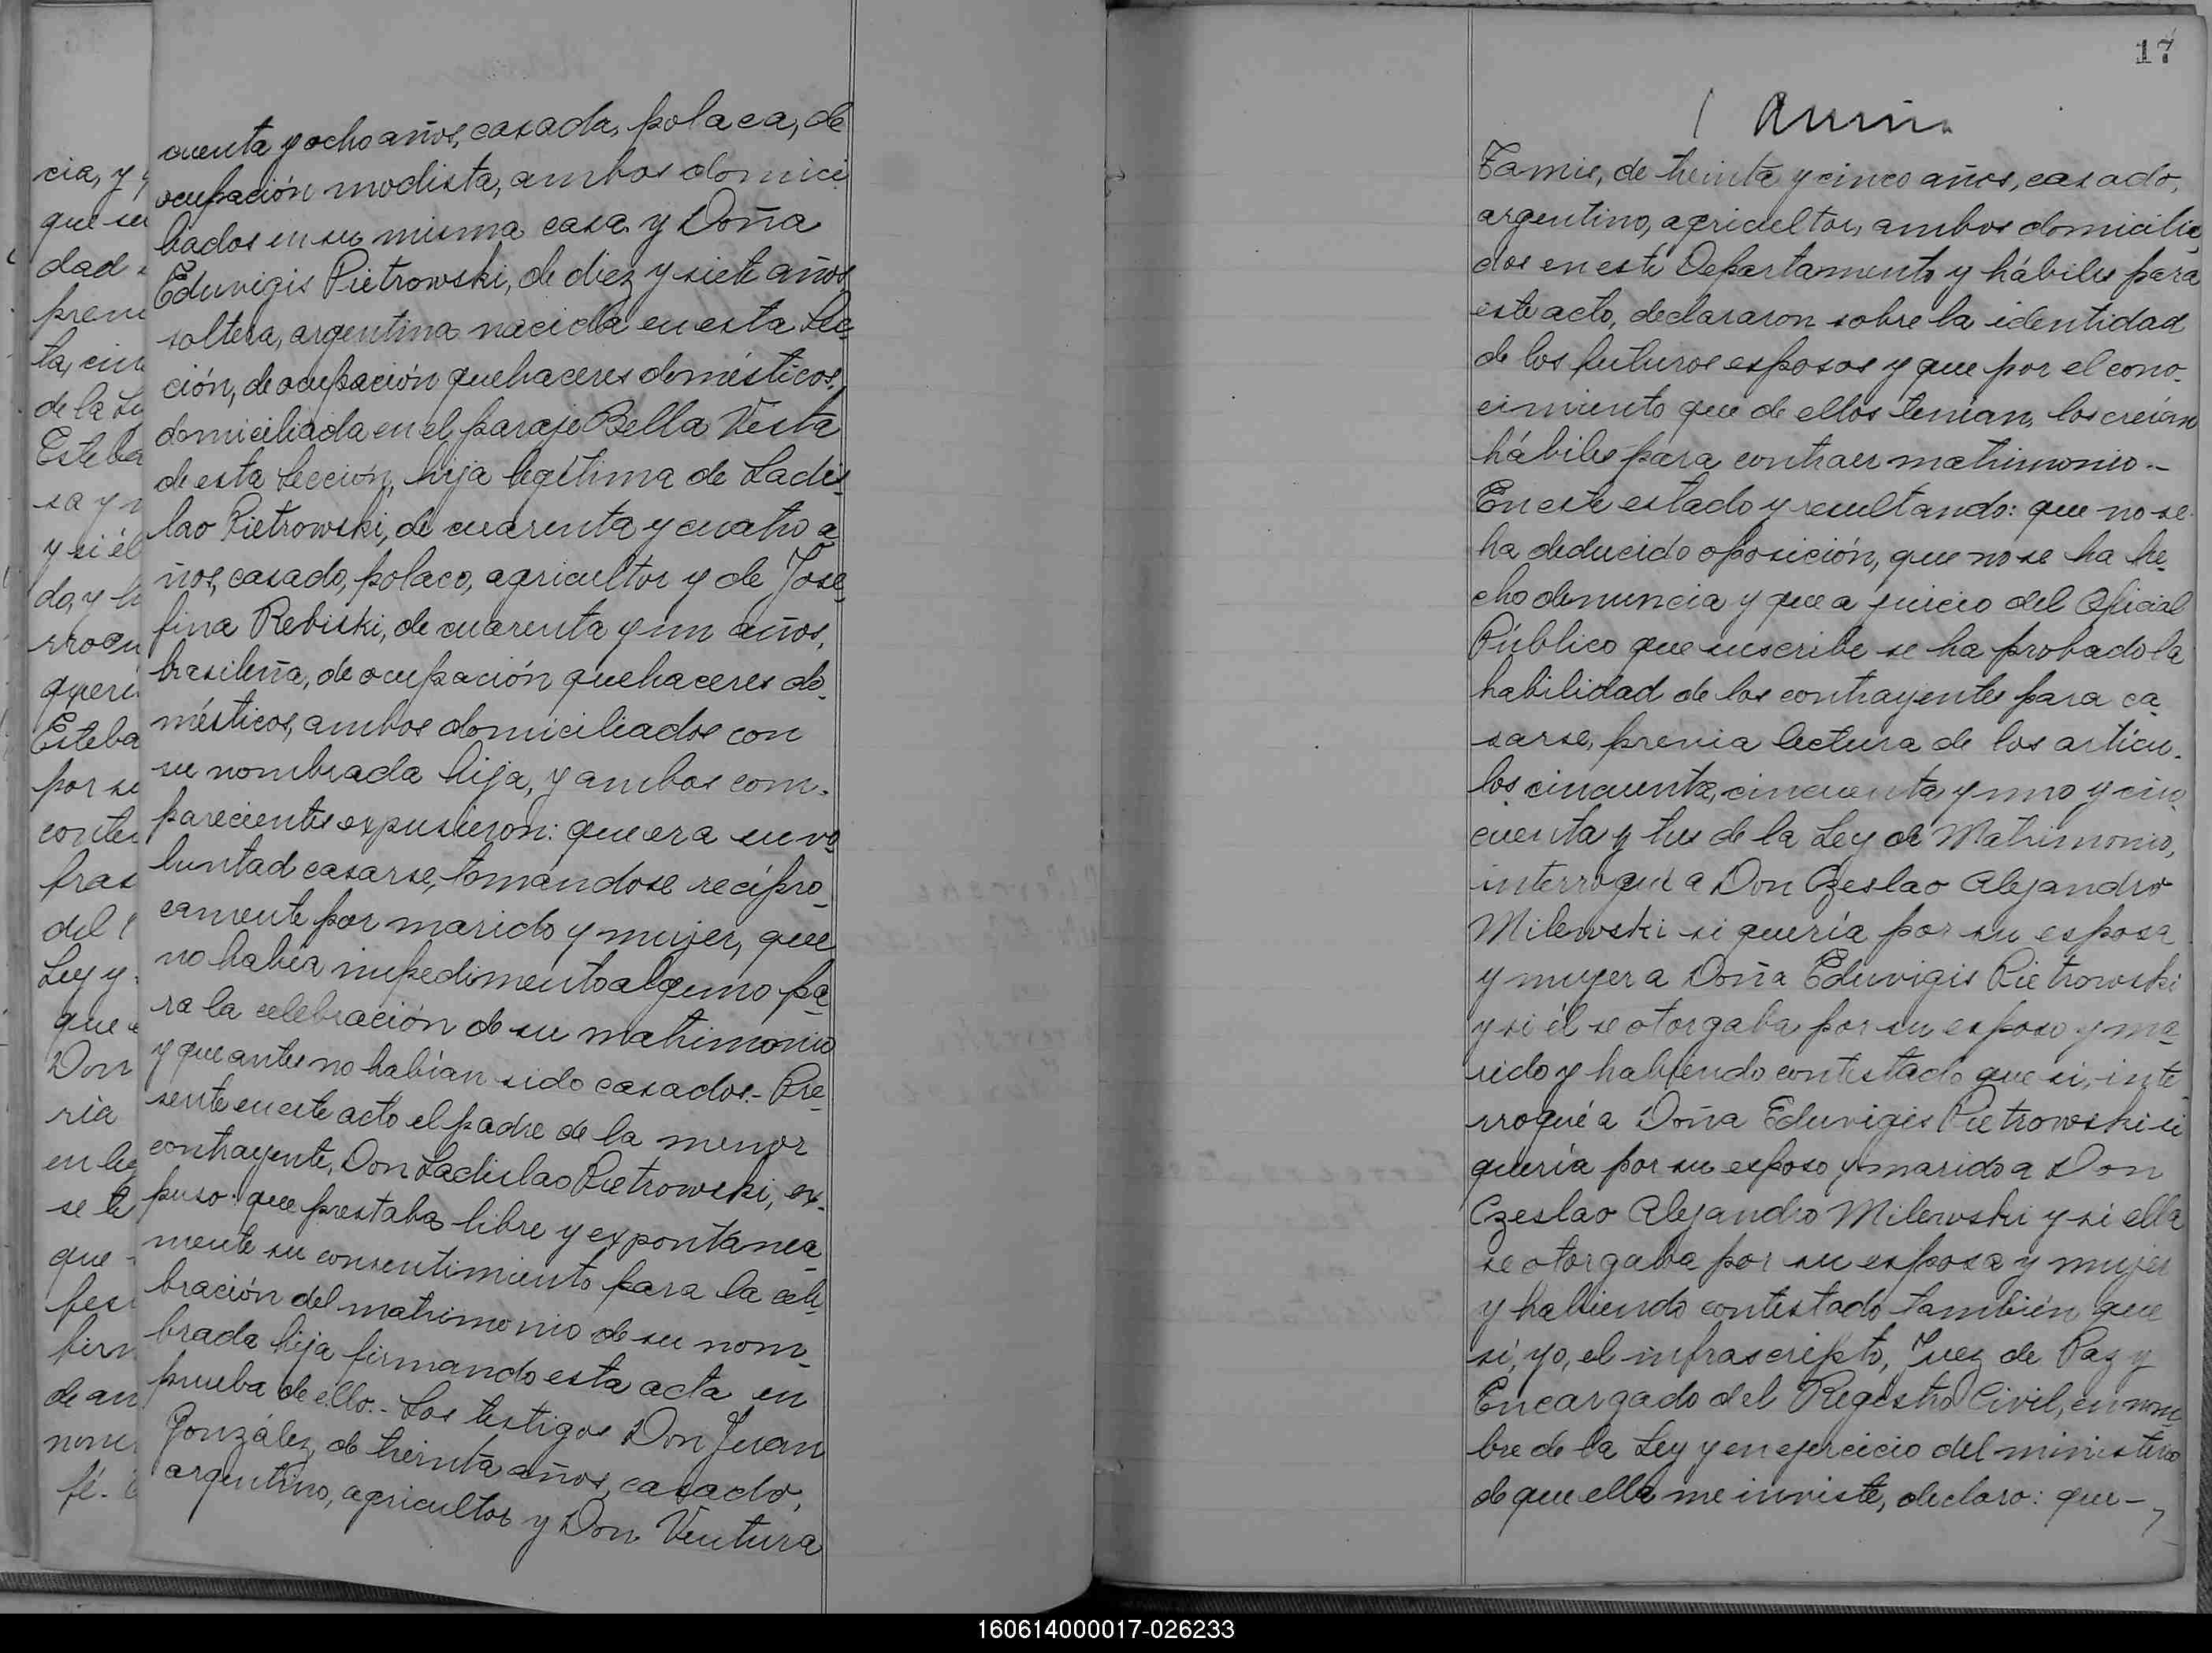 cia, y
que su
dad
pren
ta, cin
de la
Esteba
sa y
y si él
do, y
rroqu
queri
Esteba
por su
contes
fras
del
Ley y
que
Don
ría
en
se
que
firm
de
fé.
cuenta y ocho años, casada, polaca, de
ocupación modista, ambos domici
liados en su misma casa y Doña
Eduvigis Pietrowski, de diez y siete años,
soltera, argentina nacida en esta Sec-
ción, de ocupación quehaceres domésticos,
domiciliada en el paraje Bella Vista
de esta Sección, hija legítima de Ladis-
lao Pietrowski, de cuarenta y cuatro a-
ños, casado, polaco, agricultor y de Jose-
fina Rebiski, de cuarenta y un años,
brasileña, de ocupación quehaceres do-
mésticos, ambos domiciliados con
su nombrada hija, y ambos com-
parecientes expusieron: que era su vo-
luntad casarse, tomándose recípro-
camente por marido y mujer, que
no había impedimento alguno pa-
ra la celebración de su matrimonio
y que antes no habían sido casados.- Pre-
sente en este acto el padre de la menor
contrayente, Don Ladislao Pietrowski, ex-
puso: que prestaba libre y expontánea-
mente su consentimiento para la cele-
bración del matrimonio de su nom-
brada hija firmando esta acta en
prueba de ello.- Los testigos Don Juan
González, de treinta años, casado,
argentino, agricultor y Don Ventura
17
Tamis, de treinta y cinco años, casado,
argentino, agricultor, ambos domicilia-
dos en este Departamento y hábiles para
este acto, declararon sobre la identidad
de los futuros esposos y que por el cono-
cimiento que de ellos tenían, los creían
hábiles para contraer matrimonio.-
En este estado y resultando: que no se
ha deducido oposición, que no se ha he-
cho denuncia y que a juicio del Oficial
Público que suscribe se ha probado la
habilidad de los contrayentes para ca-
sarse, previa lectura de los artícu-
los cincuenta, cincuenta y uno y cin-
cuenta y tres de la Ley de Matrimonio,
interrogué a Don Czeslao Alejandro
Milewski si quería por su esposa
y mujer a Doña Eduvigis Pietrowski
y si él se otorgaba por su esposo y ma-
rido y habiendo contestado que si, inte-
rroqué a Doña Eduvigis Pietrowski si
quería por su esposo y marido a Don
Czeslao Alejandro Milewski y si ella
se otorgaba por su esposa y mujer
y habiendo contestado también que
sí, yo, el infrascripto, Juez de Paz y
Encargado del Registro Civil, en nom-
bre de la Ley y en ejercicio del ministerio
de que ella me inviste, declaro: que-
160614000017-026233